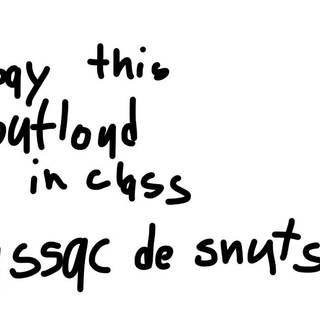 say this
outloud
in class
issac de snuts